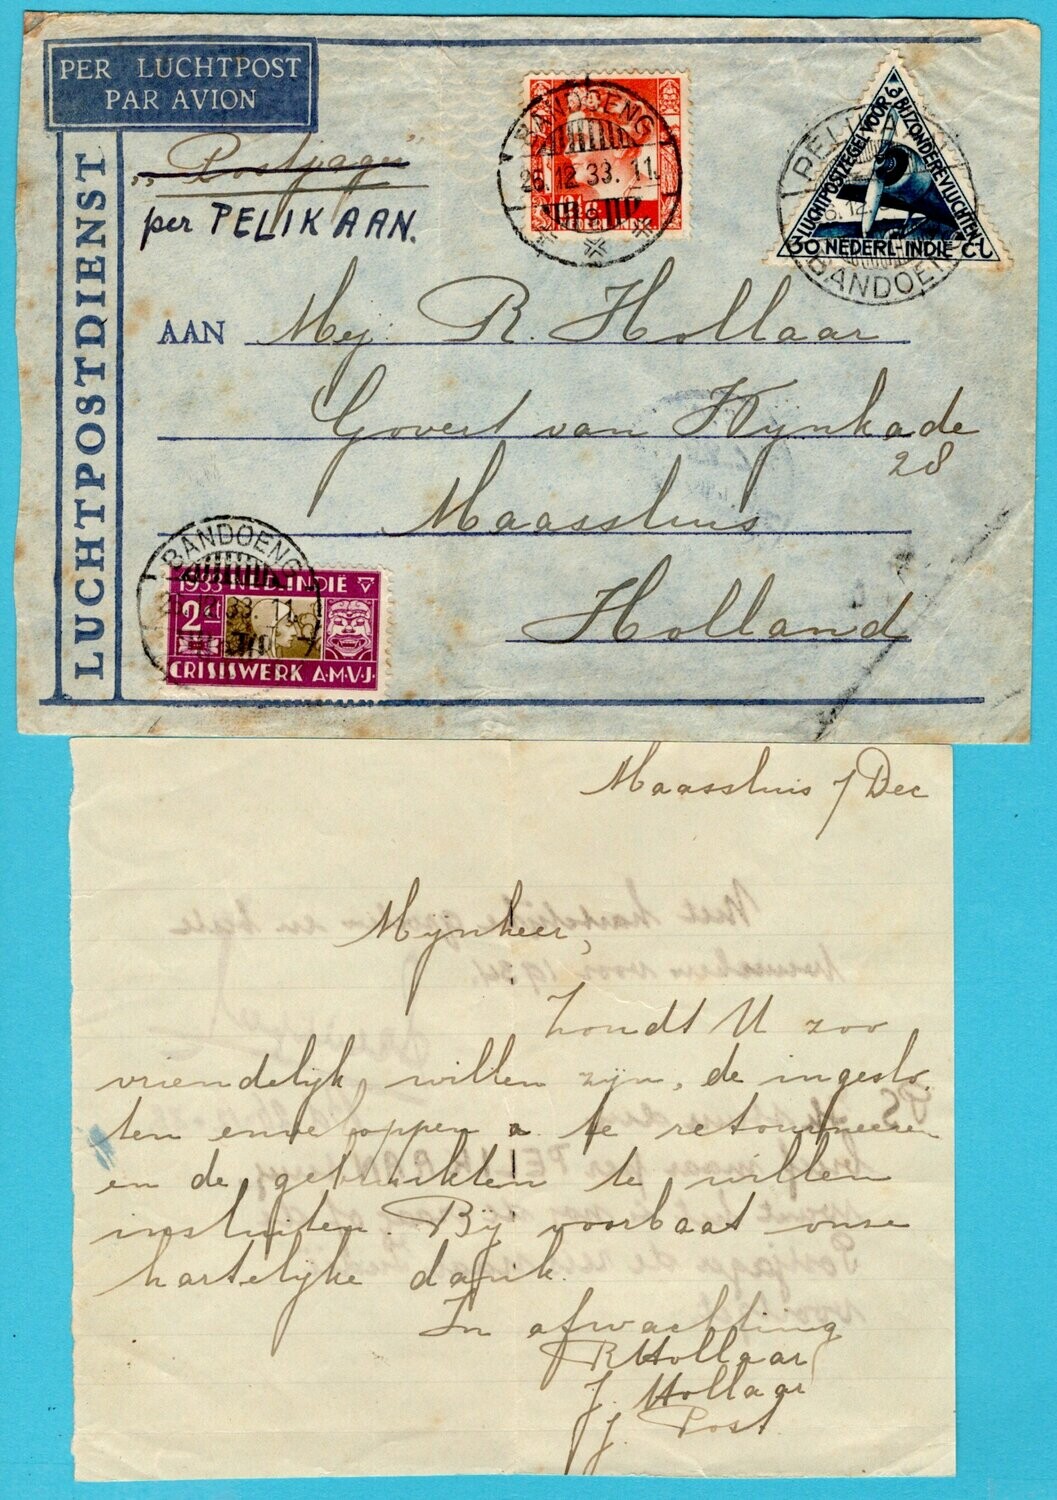 PER LUCHTPOST
PAR AVION
LUCHTPOSTDIENST
„Postjager"
per PELIKAAN.
BANDOENG
26.12.33. 11.
PELIK
BANDOEN
LUCHTPOSTZEGEL VOOR 6 BIJZONDERE VLUCHTEN
30 NEDERL-INDIE Ct
AAN Mej. R. Hollaar
Govert van Wijnkade
28
Maassluis
Holland
BANDOENG
33 11.
1933 NED. INDIE
2 ct
CRISISWERK A·M·V·J·
Maassluis 7 Dec
Mijnheer,
Zoudt U zoo
vriendelijk willen zijn, de ingeslo-
ten enveloppen te retourneeren
en de gebruikten te willen
insluiten. Bij voorbaat onze
hartelijke dank.
In afwachting
R Hollaar
J. Hollaar
J. Post